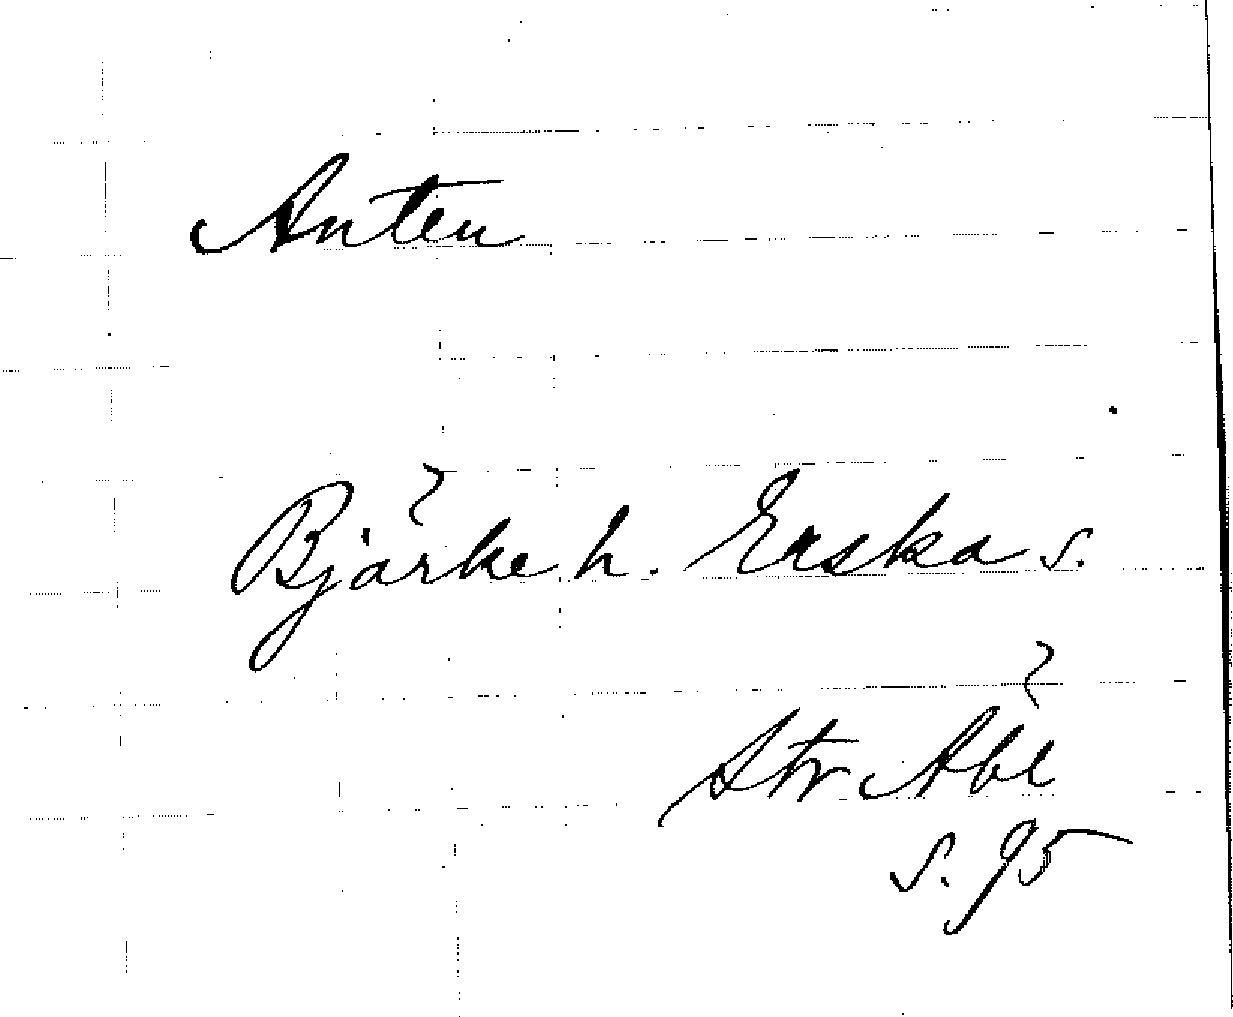 Anten
Bjärke h. Erska s.
Str Äbl
s. 95